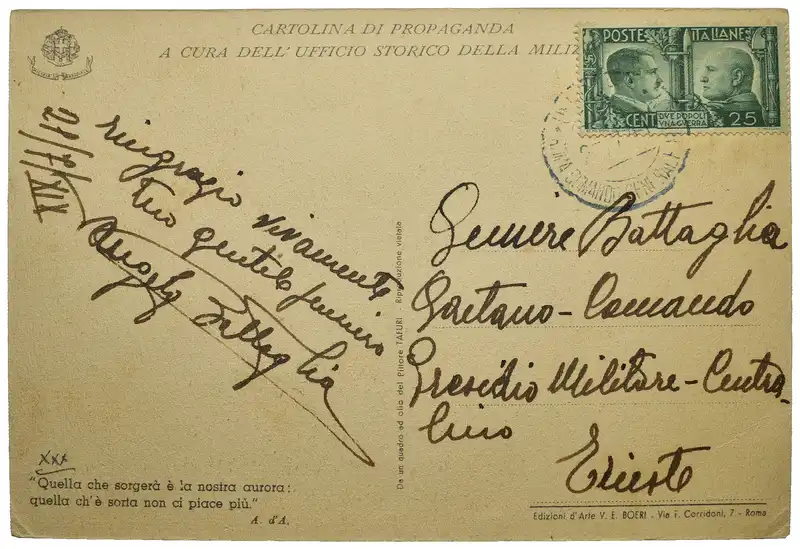 CARTOLINA DI PROPAGANDA
A CURA DELL' UFFICIO STORICO DELLA
POSTE ITALIANE
CENT DVE POPOLI 25
VNA GVERRA
21/7/XIX
ringrazio vivamente
tuo gentile pensiero
Angelo Battaglia
Geniere Battaglia
Gaetano - Comando
Presidio Militare - Centra-
lino
Trieste
Da un quadro ad olio del Pittore TAFURI Riproduzione vietata
xxx
"Quella che sorgerà è la nostra aurora:
quella ch'è sorta non ci piace più."
A. d'A.
Edizioni d'Arte V. E. BOERI - Via F. Corridoni, 7 - Roma